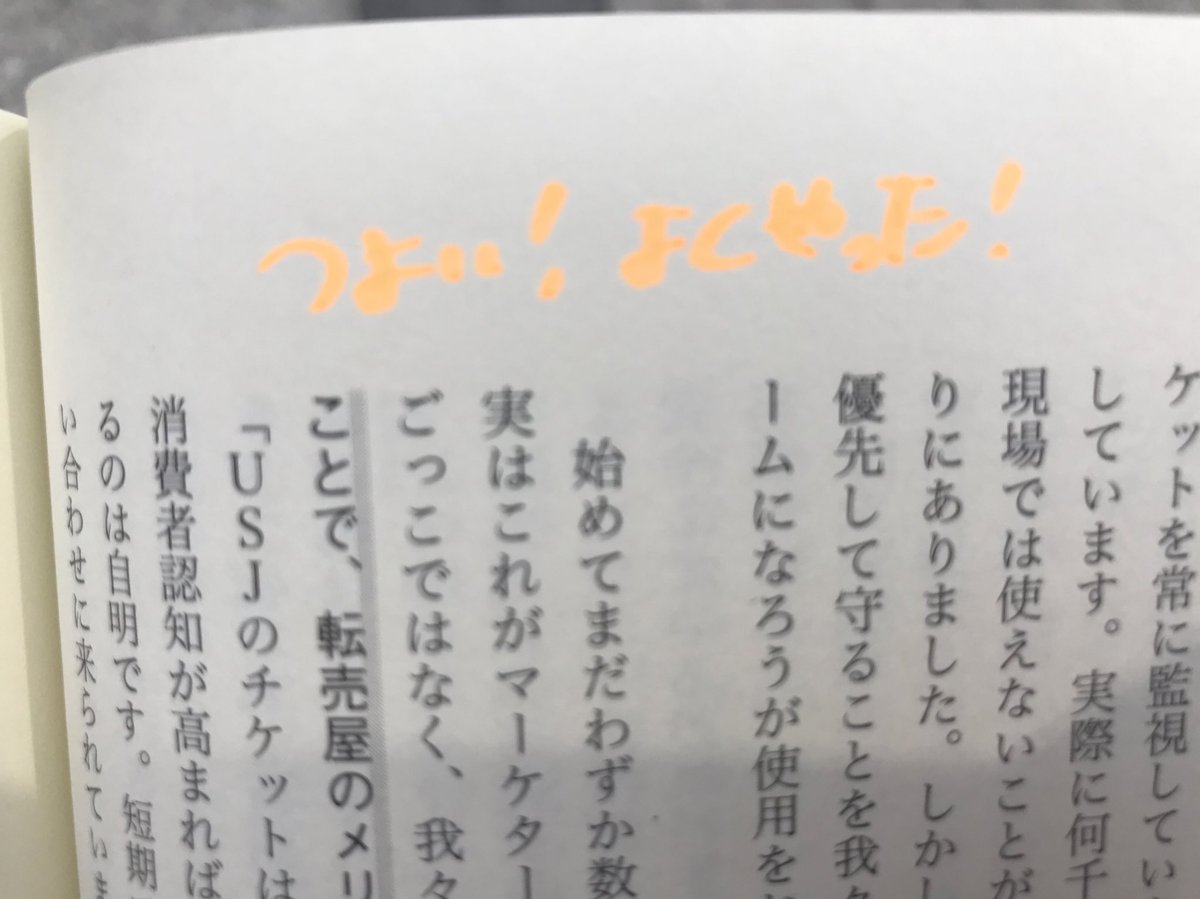 つよい！よくやった！
ケットを常に監視してい
しています。実際に何千
現場では使えないことが
りにありました。しかし
優先して守ることを我々
ームになろうが使用を
始めてまだわずか数
実はこれがマーケター
ごっこではなく、我々
ことで、転売屋のメリ
「USJのチケットは
消費者認知が高まれば
るのは自明です。短期
い合わせに来られていま